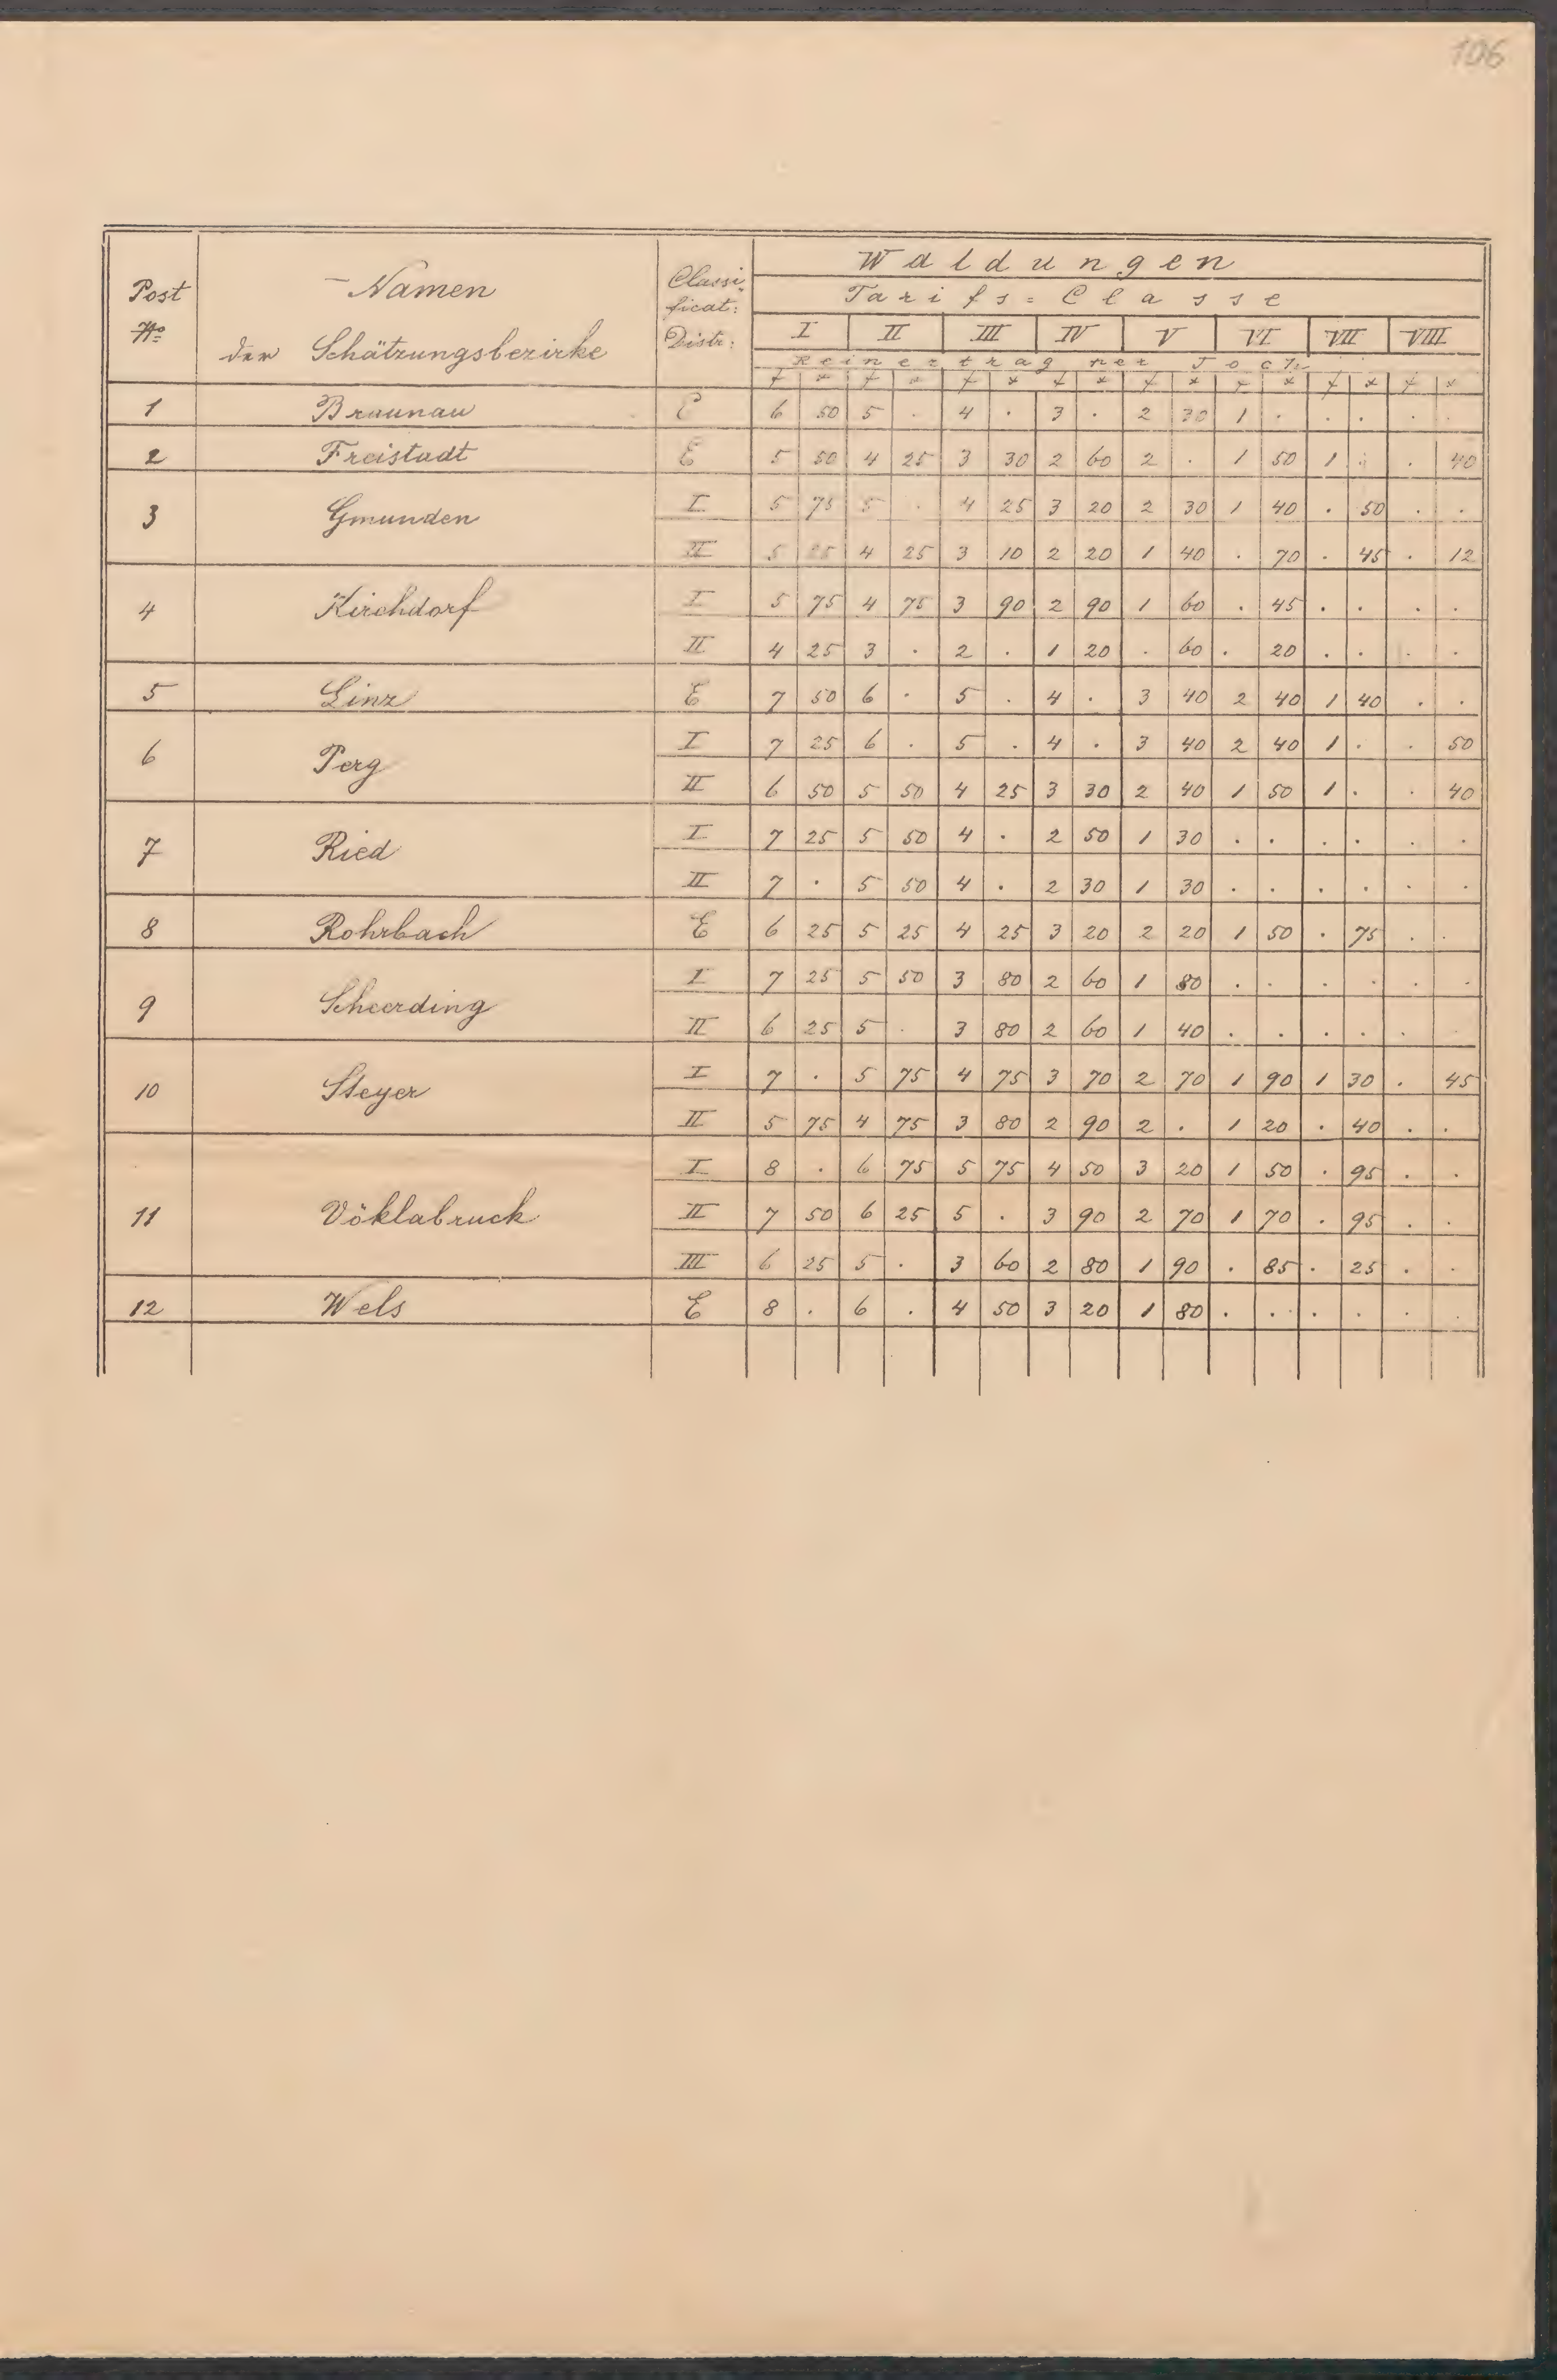 106
Post No Namen der Schätzungsbezirke Classificat: Distr: Waldungen
Tarifs=Classe
I II III IV V VI VII VIII
Reinertrag per Joch
f x f x f x f x f x f x f x f x
1 Braunau E 6 50 5 . 4 . 3 . 2 30 1 . . . . .
2 Freistadt E 5 50 4 25 3 30 2 60 2 . 1 50 1 . . 40
3 Gmunden I 5 75 5 . 4 25 3 20 2 30 1 40 . 50 . .
II 5 25 4 25 3 10 2 20 1 40 . 70 . 45 . 12
4 Kirchdorf I 5 75 4 75 3 90 2 90 1 60 . 45 . . . .
II 4 25 3 . 2 . 1 20 . 60 . 20 . . . .
5 Linz E 7 50 6 . 5 . 4 . 3 40 2 40 1 40 . .
6 Perg I 7 25 6 . 5 . 4 . 3 40 2 40 1 . . 50
II 6 50 5 50 4 25 3 30 2 40 1 50 1 . . 40
7 Ried I 7 25 5 50 4 . 2 50 1 30 . . . . . .
II 7 . 5 50 4 . 2 30 1 30 . . . . . .
8 Rohrbach E 6 25 5 25 4 25 3 20 2 20 1 50 . 75 . .
9 Scheerding I 7 25 5 50 3 80 2 60 1 80 . . . . . .
II 6 25 5 . 3 80 2 60 1 40 . . . . . .
10 Steyer I 7 . 5 75 4 75 3 70 2 70 1 90 1 30 . 45
II 5 75 4 75 3 80 2 90 2 . 1 20 . 40 . .
11 Vöklabruck I 8 . 6 75 5 75 4 50 3 20 1 50 . 95 . .
II 7 50 6 25 5 . 3 90 2 70 1 70 . 95 . .
III 6 25 5 . 3 60 2 80 1 90 . 85 . 25 . .
12 Wels E 8 . 6 . 4 50 3 20 1 80 . . . . . .